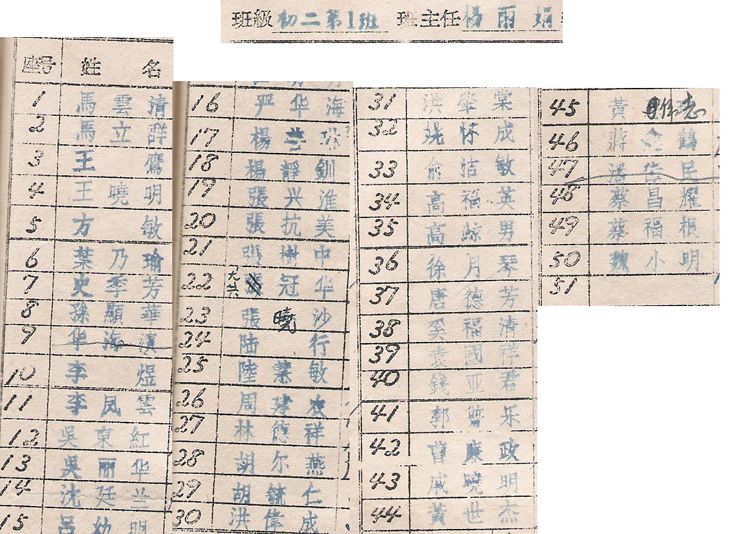 班級 初二第1班 班主任 楊雨娟
座号 姓名
1 馬雲清
2 馬立群
3 王鷹
4 王曉明
5 方敏
6 葉乃瑜
7 史季芳
8 孫顯華
9 华海濱
10 李煜
11 李凤雲
12 吳東紅
13 吳丽华
14 沈廷兰
15 呂幼明
16 严华海
17 楊兰
18 楊靜釧
19 張兴淮
20 張抗美
21 張樹中
22 冠华
23 張曉沙
24 陆行
25 陸慧敏
26 周建农
27 林德祥
28 胡尔燕
29 胡鏞仁
30 洪偉成
31 洪肇棠
32 姚怀成
33 俞洁敏
34 高福英
35 高踪男
36 徐月琴
37 唐德芳
38 奚福清
39 袁國祥
40 亚君
41 郭乐
42 曹康政
43 戚曉明
44 黃世杰
45 黃志
46 蔣鶴
47 潘偉民
48 蔡昌耀
49 蔡福根
50 魏小明
51